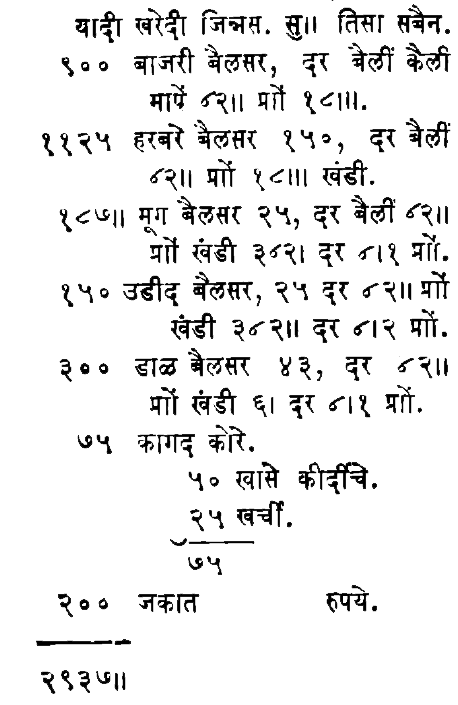 यादी खरेदी जिन्नस. सु॥ तिसा सबैन.
९०० बाजरी बैलसर, दर बैलीं कैली
मापें ८२॥ प्रों १८॥।.
११२५ हरबरे बैलसर १५०, दर बैलीं
८२॥ प्रों १८॥। खंडी.
१८७॥ मूग बैलसर २५, दर बैलीं ८२॥
प्रों खंडी ३८२। दर ८।१ प्रों.
१५० उडीद बैलसर, २५ दर ८२॥ प्रों
खंडी ३८२॥ दर ८।२ प्रों.
३०० डाळ बैलसर ४३, दर ८२॥
प्रों खंडी ६। दर ८।१ प्रों.
७५ कागद कोरे.
५० खासे कीर्दीचे.
२५ खर्ची.
७५
२०० जकात रुपये.
२९३७॥